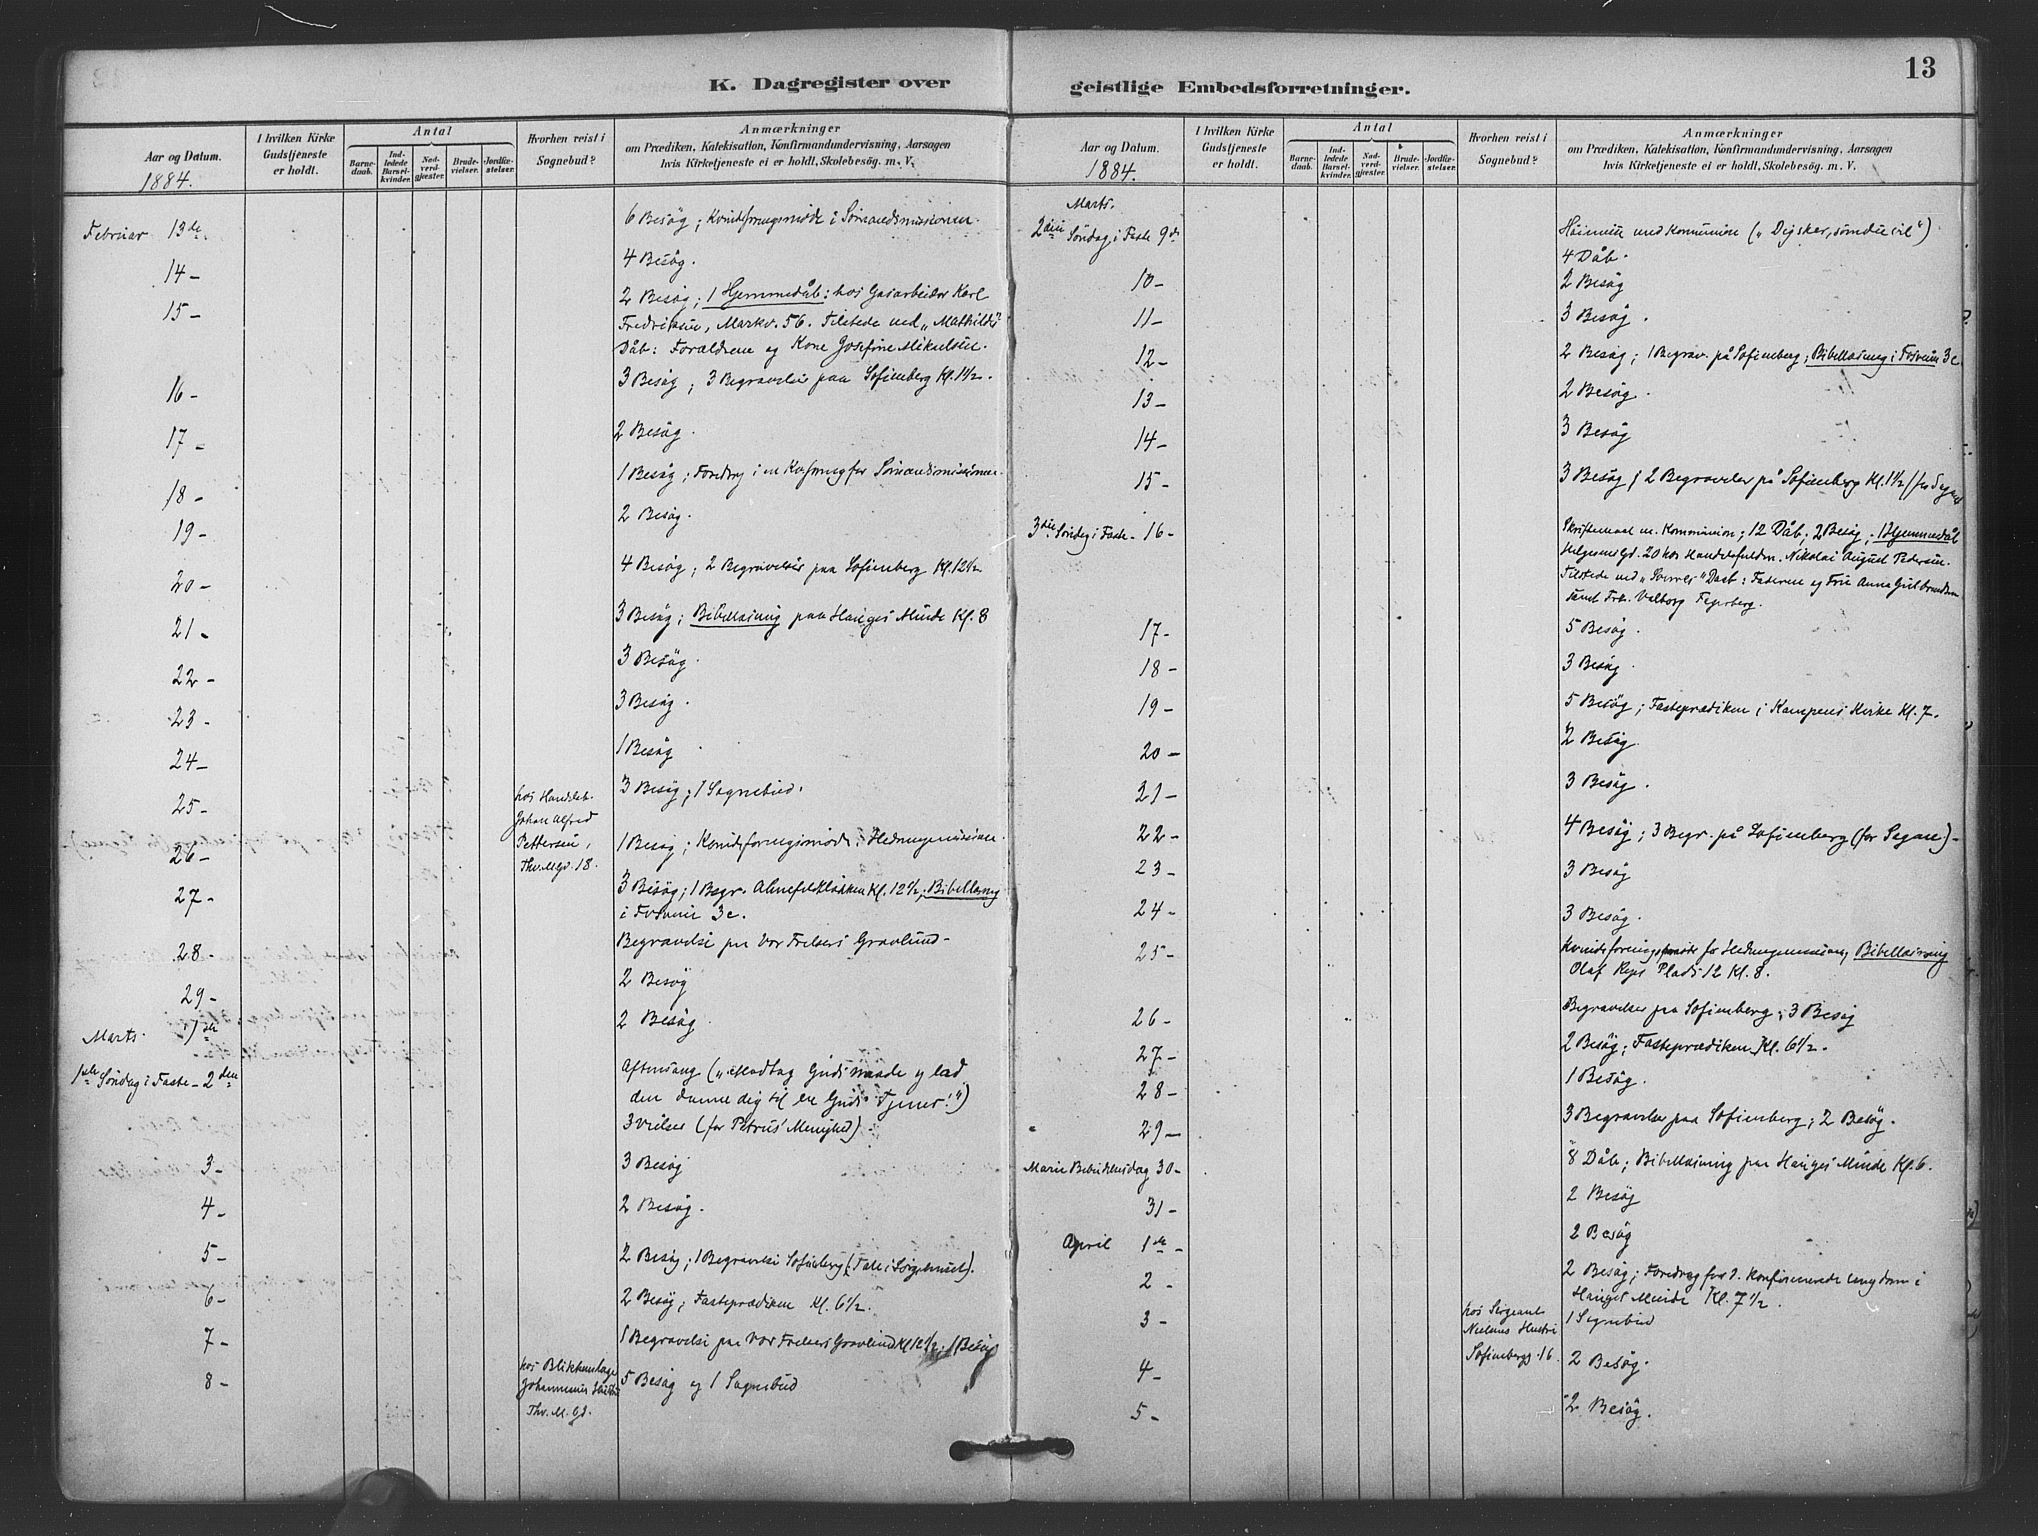 K. Dagregister over
Aar og Datum.
1884.
I hvilken Kirke Gudstjeneste er holdt.
Antal
Barnedaab.
Indledede Barselkvinder.
Nadverdgjæster.
Brudevielser.
Jordfæstelser.
Hvorhen reist i Sognebud?
Anmærkninger
om Prædiken, Katekisation, Konfirmandundervisning, Aarsagen
hvis Kirketjeneste ei er holdt, Skolebesøg. m. V.
Februar 13de 6 Besøg; Kvindeforeningsmøde i Sømandsmissionen.
14 – 4 Besøg.
15 – 2 Besøg; 1 Hjemmedåb: hos Gasarbeider Karl
Fredriksen, Markv. 56. Tilstede ved „Mathildes"
Dåb: Forældrene og Kone Josefine Mikelsen.
16 – 3 Besøg; 3 Begravelser paa Sofienberg Kl. 1½.
17 – 2 Besøg.
18 – 1 Besøg; Foredrag i en Kvforening for Sømandsmissionen.
19 – 2 Besøg.
20 – 4 Besøg; 2 Begravelser paa Sofienberg Kl. 12½
21 – 3 Besøg; Bibellæsning paa Hauges Minde Kl. 8
22 – 3 Besøg.
23 – 3 Besøg.
24 – 1 Besøg
25 – hos Handelsb. 3 Besøg; 1 Sognebud.
Johan Alfred
Pettersen,
Thv. Mgv. 18.
26 – 1 Besøg; Kvindeforeningsmøde i Hedningemissionen
27 – 3 Besøg; 1 Begr. Kl. 12½; Bibellæsning
i Fosveien 3c.
28 – Begravelse paa Vor Frelsers Gravlund –
29 – 2 Besøg
Marts. 1ste 2 Besøg.
1ste Søndag i Faste – 2den Aftensang („Modtag Guds naade og lad
den danne dig til en Guds Tjener!")
3 vielser (for Petrus' Menighed)
3 – 3 Besøg
4 – 2 Besøg.
5 – 2 Besøg; 1 Begravelse Sofienberg (Tale i Sørgehuset).
6 – 2 Besøg; Fasteprædiken Kl. 6½.
7 – 1 Begravelse paa Vor Frelsers Gravlund Kl 12½. 1 Besøg
8 – hos Blikkenslager 5 Besøg og 1 Sognebud
Johannesens Hustru
Thv. M. Gd.
geistlige Embedsforretninger.
13
Aar og Datum.
1884.
I hvilken Kirke Gudstjeneste er holdt.
Antal
Barnedaab.
Indledede Barselkvinder.
Nadverdgjæster.
Brudevielser.
Jordfæstelser.
Hvorhen reist i Sognebud?
Anmærkninger
om Prædiken, Katekisation, Konfirmandundervisning, Aarsagen
hvis Kirketjeneste ei er holdt, Skolebesøg. m. V.
Marts.
2den Søndag i Faste 9de Høimesse med Kommunion („Dig sker, som du vil")
4 Dåb.
10 – 2 Besøg
11 – 3 Besøg.
12 – 2 Besøg; 1 Begrav. på Sofienberg; Bibellæsning i Fosveien 3c.
13 – 2 Besøg.
14 – 3 Besøg
15 – 3 Besøg; 2 Begravelser på Sofienberg Kl. 1½ (for Sagene
3die Søndag i Faste – 16 – Skriftemaal m. Kommunion; 12 Dåb; 2 Besøg; 1 Hjemmedåb
Helgesens Gd. 20 hos Handelsfuldm. Nikolai August Pedersen.
Tilstede ved Daab: Faderen og Fru Anna Gulbrandsen
samt Frk. Valborg
17 – 5 Besøg.
18 – 3 Besøg.
19 – 5 Besøg; Fasteprædiken i Kampens Kirke Kl. 7.
20 – 2 Besøg.
21 – 3 Besøg.
22 – 4 Besøg; 3 Begr. på Sofienberg (for Sagene) –
23 – 3 Besøg
24 – 3 Besøg.
25 – Kvindeforeningsmøde for Hedningemissionen, Bibellæsning
Olaf Ryes Plads 12 Kl. 8.
26 – Begravelser paa Sofienberg; 3 Besøg
27 – 2 Besøg; Fasteprædiken Kl. 6½.
28 – 1 Besøg.
29 – 3 Begravelser paa Sofienberg; 2 Besøg.
Marie Bebudelsesdag 30 – 8 Dåb; Bibellæsning paa Hauges Minde Kl. 6.
31 – 2 Besøg
April 1ste – 2 Besøg
2 – 2 Besøg; Foredrag for d. konfirmerede ungdom i
Hauges Minde Kl. 7½.
3 – hos Sergeant 1 Sognebud
Nielsens Hustru
Sofienbergg. 16.
4 – 2 Besøg.
5 – 2 Besøg.